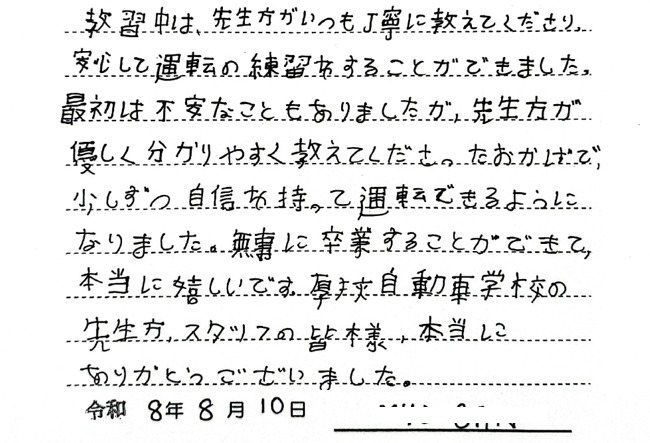 教習中は、先生方がいつも丁寧に教えてくださり、
安心して運転の練習をすることができました。
最初は不安なこともありましたが、先生方が
優しく分かりやすく教えてくださったおかげで、
少しずつ自信を持って運転できるように
なりました。無事に卒業することができて、
本当に嬉しいです。厚狭自動車学校の
先生方、スタッフの皆様、本当に
ありがとうございました。
令和 8年 8月 10日